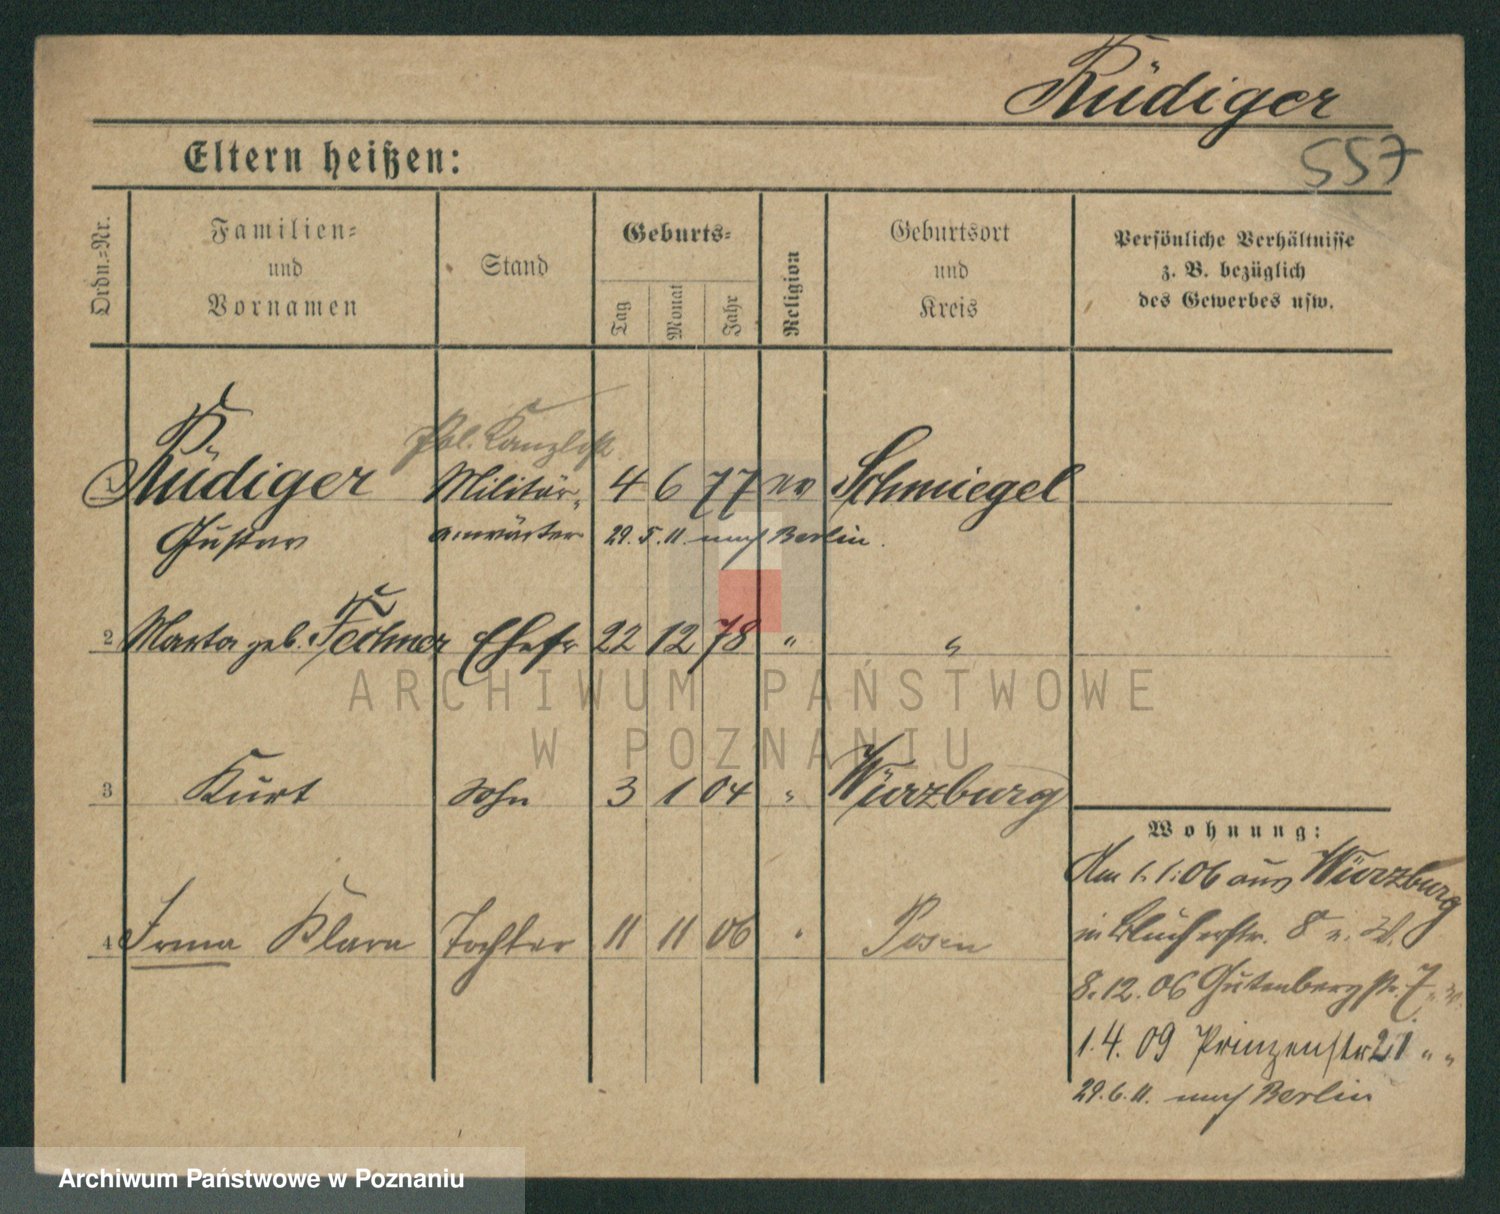 Rüdiger
557
Eltern heißen:
Ordn.-Nr.
Familien-
und
Vornamen
Stand
Geburts-
Tag
Monat
Jahr
Religion
Geburtsort
und
Kreis
Persönliche Verhältnisse
z. B. bezüglich
des Gewerbes usw.
Pol. Kanzlist
1 Rüdiger Militär- 4 6 77 ev Schmiegel
Gustav anwärter 29. 5. 11. nach Berlin.
2 Marta geb. Fechner Ehefr 22 12 78 " "
ARCHIWUM PAŃSTWOWE
W POZNANIU
3 Kurt Sohn 3 1 04 " Würzburg
4 Irma Klara Tochter 11 11 06 " Posen
Wohnung:
Am 1. 1. 06 aus Würzburg
in Blücherstr. 8 n. W.
8. 12. 06 Gutenbergstr. 7 n. W.
1. 4. 09 Prinzenstr 21 " "
29. 6. 11. nach Berlin
Archiwum Państwowe w Poznaniu